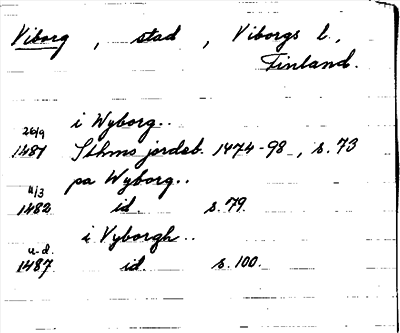 Viborg, stad, Viborgs l.,
Finland.
i Wyborg..
26/9
1481 Sthms jordeb. 1474-98, s. 73
pa Wyborg..
11/3
1482 id. s. 79.
i Vyborgh..
u.d.
1487 id. s. 100.